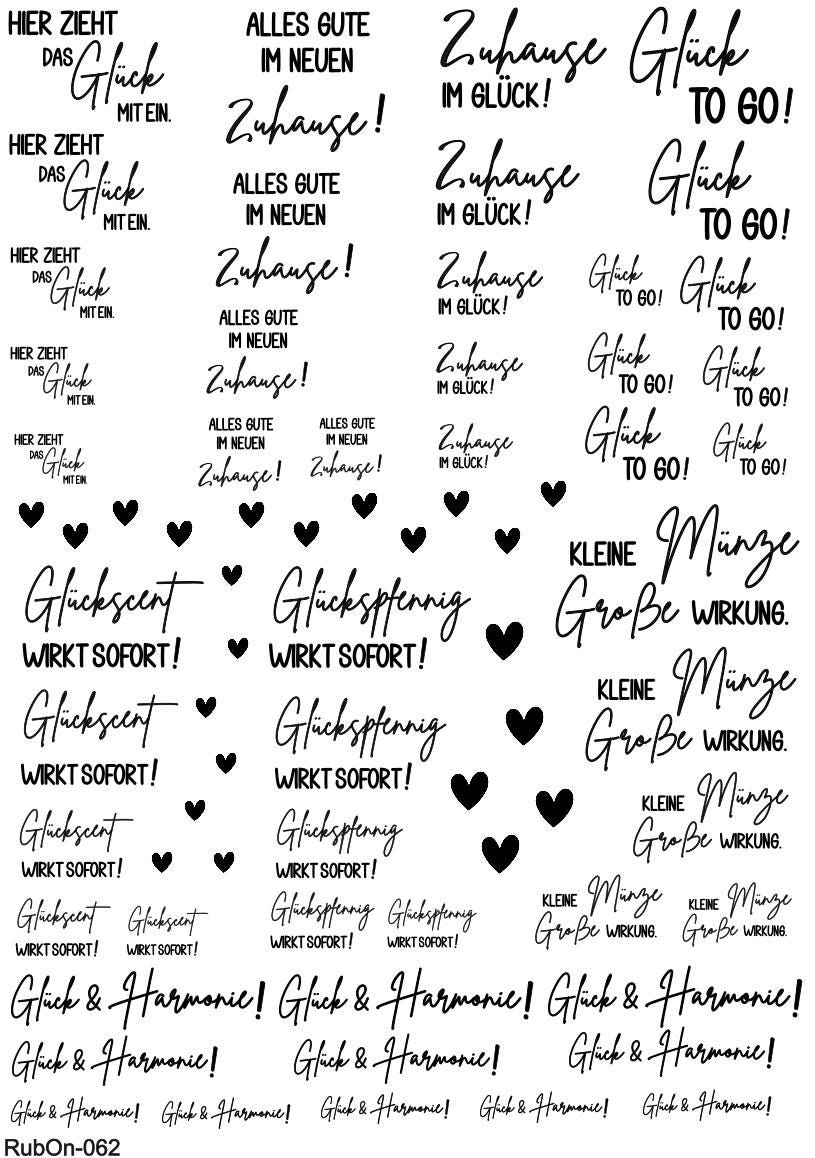 HIER ZIEHT
DAS Glück
MIT EIN.
HIER ZIEHT
DAS Glück
MIT EIN.
HIER ZIEHT
DAS Glück
MIT EIN.
HIER ZIEHT
DAS Glück
MIT EIN.
HIER ZIEHT
DAS Glück
MIT EIN.
ALLES GUTE
IM NEUEN
Zuhause!
ALLES GUTE
IM NEUEN
Zuhause!
ALLES GUTE
IM NEUEN
Zuhause!
ALLES GUTE
IM NEUEN
Zuhause!
ALLES GUTE
IM NEUEN
Zuhause!
Zuhause
IM GLÜCK!
Zuhause
IM GLÜCK!
Zuhause
IM GLÜCK!
Zuhause
IM GLÜCK!
Zuhause
IM GLÜCK!
Glück
TO GO!
Glück
TO GO!
Glück
TO GO!
Glück
TO GO!
Glück
TO GO!
Glück
TO GO!
Glück
TO GO!
Glück
TO GO!
Glückscent
WIRKT SOFORT!
Glückscent
WIRKT SOFORT!
Glückscent
WIRKT SOFORT!
Glückscent
WIRKT SOFORT!
Glückscent
WIRKT SOFORT!
Glückspfennig
WIRKT SOFORT!
Glückspfennig
WIRKT SOFORT!
Glückspfennig
WIRKT SOFORT!
Glückspfennig
WIRKT SOFORT!
Glückspfennig
WIRKT SOFORT!
KLEINE Münze
Große WIRKUNG.
KLEINE Münze
Große WIRKUNG.
KLEINE Münze
Große WIRKUNG.
KLEINE Münze
Große WIRKUNG.
KLEINE Münze
Große WIRKUNG.
Glück & Harmonie!
Glück & Harmonie!
Glück & Harmonie!
Glück & Harmonie!
Glück & Harmonie!
Glück & Harmonie!
Glück & Harmonie!
Glück & Harmonie!
Glück & Harmonie!
Glück & Harmonie!
Glück & Harmonie!
RubOn-062